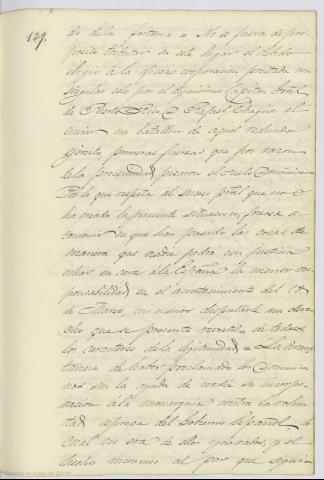 129.
do de la fortuna = No es fuera de pro-
posito tributar en este lugar el debido
elogio á la eficaz cooperacion prestada con
singular celo por el dignisimo Capitan Gral
de Puerto Rico D. Rafael Echagüe al
enviar un batallon de aquel reducido
egército, primeras fuerzas que por razon
de la proximidad pisaron el suelo Dominicano
Por lo que respeta al suceso que nos
ha creado la presente situacion, fuerza es
convenir en que han pasado las cosas de
manera que nadie podrá con justicia
echar en cara á la España la menor res-
ponsabilidad en el acontecimiento del 18
de Marzo, ni menos disputarle un dere-
cho que se presenta revestido de todos
los caractéres de la legitimidad = La circuns-
tancia de haber proclamado los Dominica-
nos sin la ayuda de nadie su incorpo-
racion á la monarquia contra la volun-
tad espresa del Gobierno Español, lo
cual no era de ellos ignorado, y el
hecho mismo al par que signi-